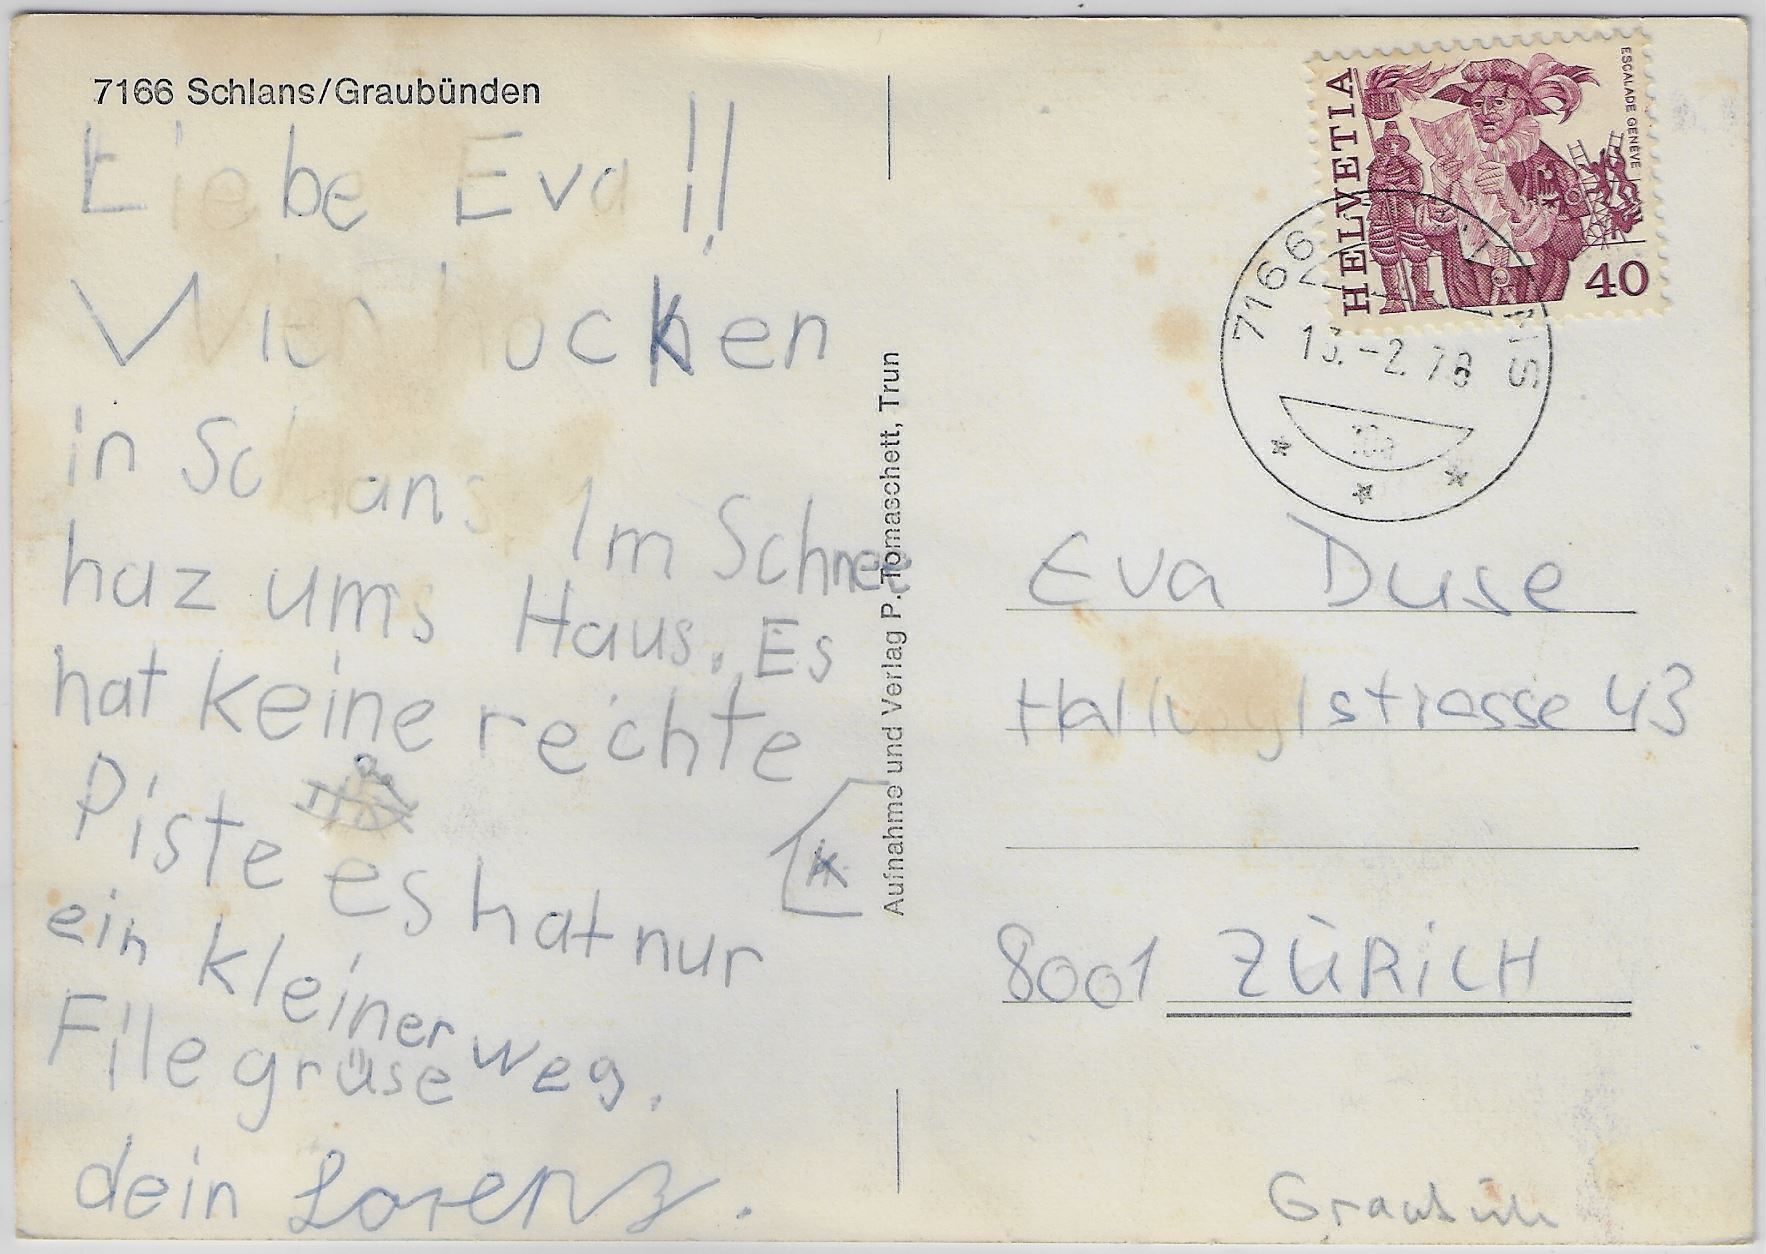 7166 Schlans/Graubünden
Liebe Eva !!
Wier hocken
in Schlans. Im Schnee
haz ums Haus. Es
hat keine rechte
Piste es hat nur
ein kleiner weg.
File grüse
dein Lorenz.
Aufnahme und Verlag P. Tomaschett, Trun
HELVETIA
ESCALADE GENÈVE
40
7166
13.-2.78
Eva Duse
Hallwylstrasse 43
8001 ZÜRiCH